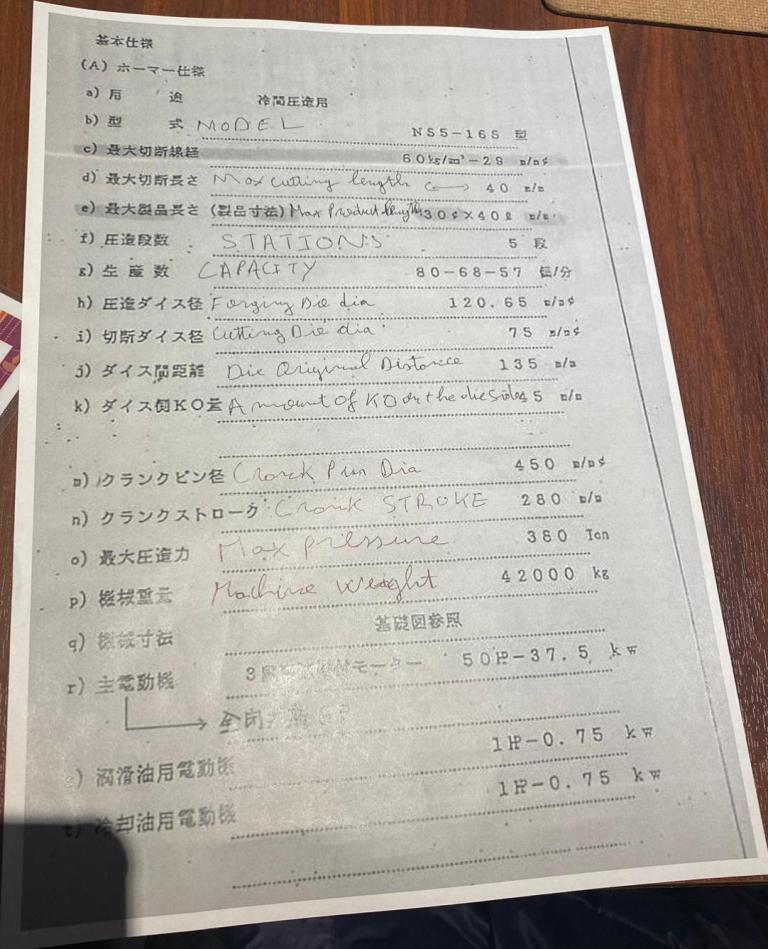 基本仕様
(A) ホーマー仕様
a) 用 途 冷間圧造用
b) 型 式 MODEL NS5-165 型
c) 最大切断線径 60kg/mm²-29 m/m¢
d) 最大切断長さ Max Cutting length 40 m/m
e) 最大製品長さ (製品寸法) Max Product length 30¢×40ℓ m/m
f) 圧造段数 STATIONS 5 段
g) 生産数 CAPACITY 80-68-57 個/分
h) 圧造ダイス径 Forging Die dia 120.65 m/m¢
i) 切断ダイス径 Cutting Die dia 75 m/m¢
j) ダイス間距離 Die Original Distance 135 m/m
k) ダイス側KO量 Amount of KO on the die side 45 m/m
m) クランクピン径 Crank Pin Dia 450 m/m¢
n) クランクストローク Crank STROKE 280 m/m
o) 最大圧造力 Max pressure 380 Ton
p) 機械重量 Machine weight 42000 kg
q) 機械寸法 基礎図参照
r) 主電動機 モーター 50HP-37.5 kw
s) 潤滑油用電動機 1HP-0.75 kw
t) 冷却油用電動機 1HP-0.75 kw